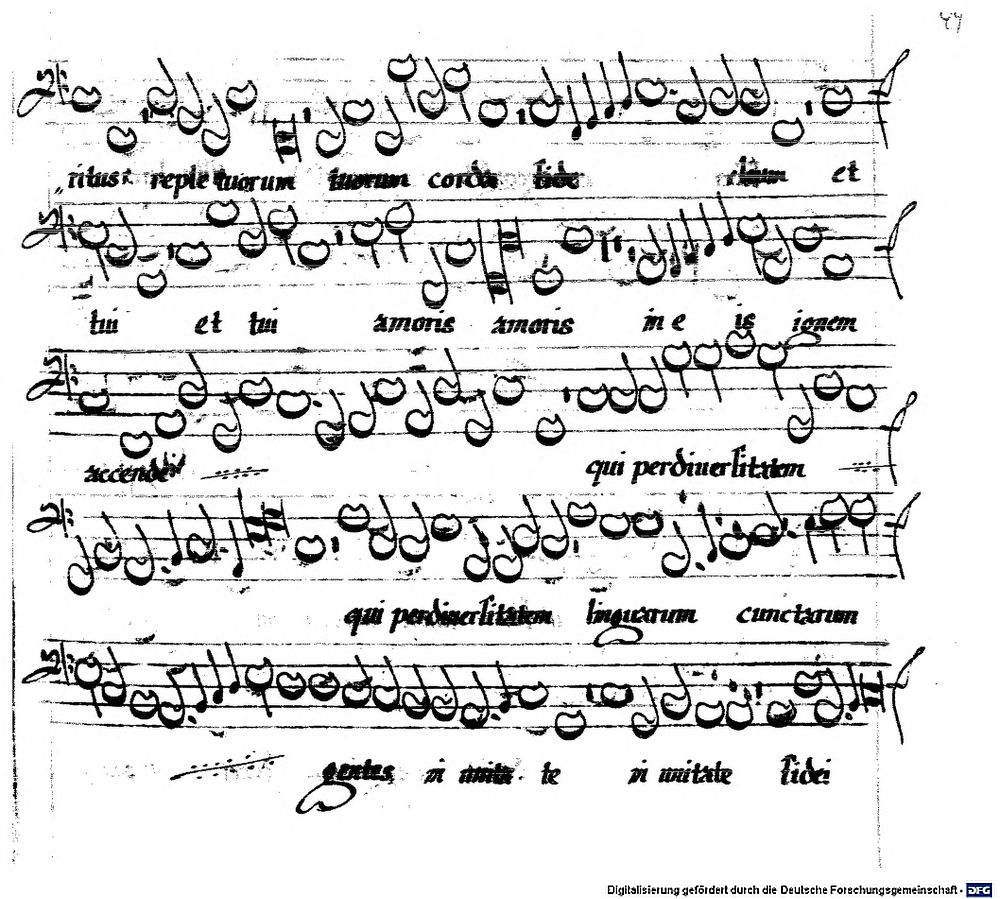 44
ritus reple tuorum tuorum corda fide lium et
tui et tui amoris amoris in e is ignem
accende qui perdiuersitatem
qui perdiuersitatem linguarum cunctarum
gentes in unita te in unitate fidei
Digitalisierung gefördert durch die Deutsche Forschungsgemeinschaft - DFG